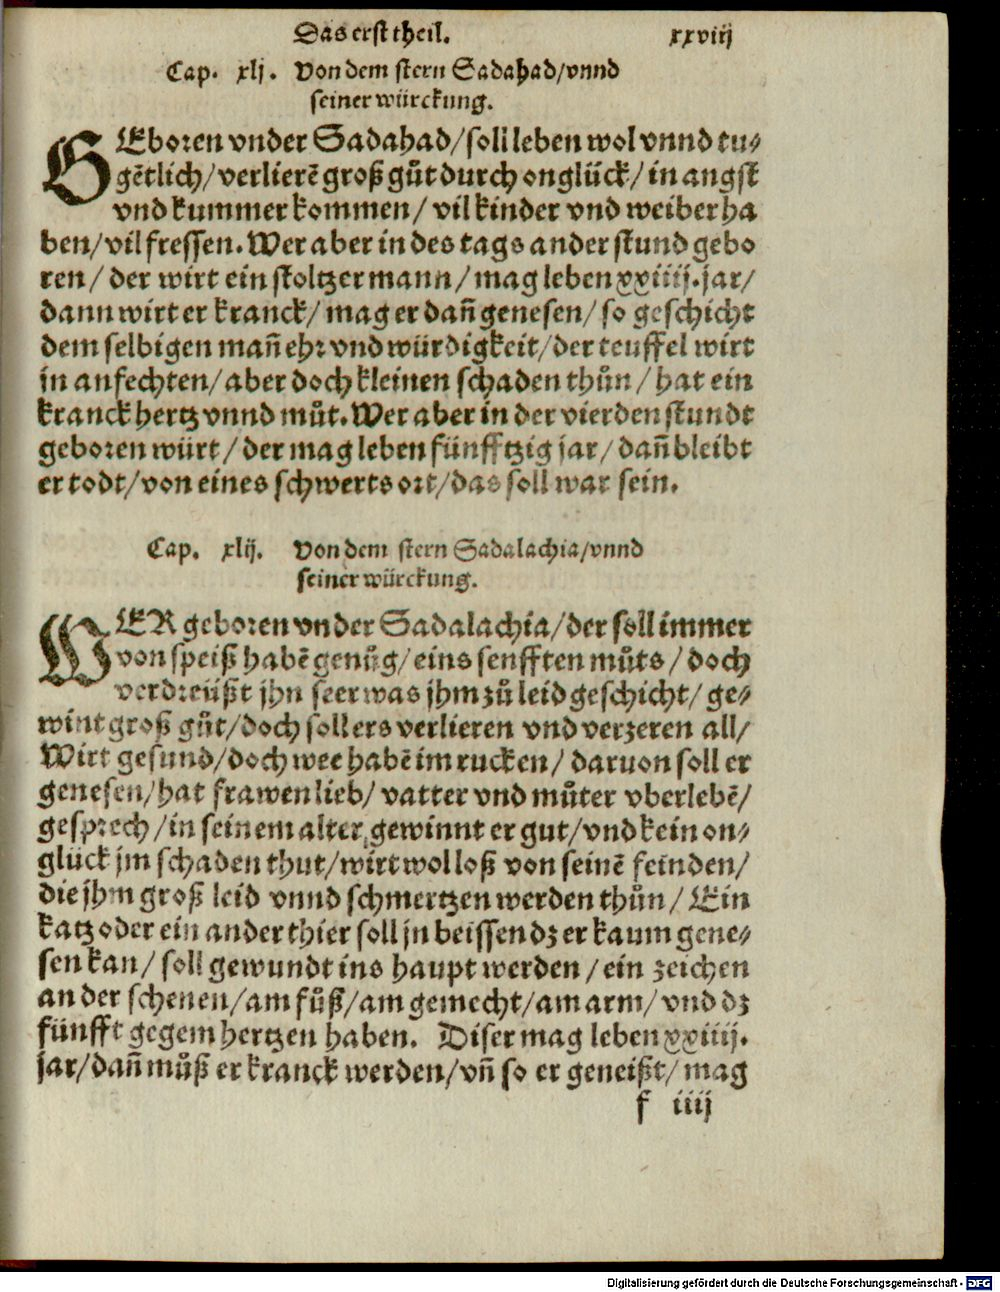 Das erst theil. xxviij
Cap. xlj. Von dem stern Sadahad/vnnd
seiner würckung.
GEboren vnder Sadahad/soll leben wol vnnd tu-
gẽtlich/verlierẽ groß gůt durch onglück/in angst
vnd kummer kommen/ vil kinder vnd weiber ha
ben/vil fressen. Wer aber in des tags ander stund gebo
ren/ der wirt ein stoltzer mann/ mag leben xxiiij. jar/
dann wirt er kranck/ mag er dañ genesen/ so geschicht
dem selbigen mañ ehr vnd würdigkeit/der teuffel wirt
jn anfechten/aber doch kleinen schaden thůn/ hat ein
kranck hertz vnnd můt. Wer aber in der vierden stundt
geboren würt/ der mag leben fünfftzig jar/ dañ bleibt
er todt/von eines schwerts ort/das soll war sein.
Cap. xlij. Von dem stern Sadalachia/vnnd
seiner würckung.
WER geboren vnder Sadalachia/der soll immer
von speiß habẽ genůg/eins senfften můts/ doch
verdreüßt jhn seer was jhm zů leid geschicht/ ge-
wint groß gůt/doch soll ers verlieren vnd verzeren all/
Wirt gesund/doch wee habẽ im rucken/ daruon soll er
genesen/hat frawen lieb/ vatter vnd můter vberlebẽ/
gesprech/in seinem alter gewinnt er gut/vnd kein on-
glück jm schaden thut/wirt wol loß von seinẽ feinden/
die jhm groß leid vnnd schmertzen werden thůn/ Ein
katz oder ein ander thier soll jn beissen dz er kaum gene-
sen kan/ soll gewundt ins haupt werden/ein zeichen
an der schenen/am fůß/am gemecht/am arm/ vnd dz
fünfft gegem hertzen haben. Diser mag leben xxiiij.
jar/dañ můß er kranck werden/vñ so er geneißt/ mag
f iiij
Digitalisierung gefördert durch die Deutsche Forschungsgemeinschaft - DFG